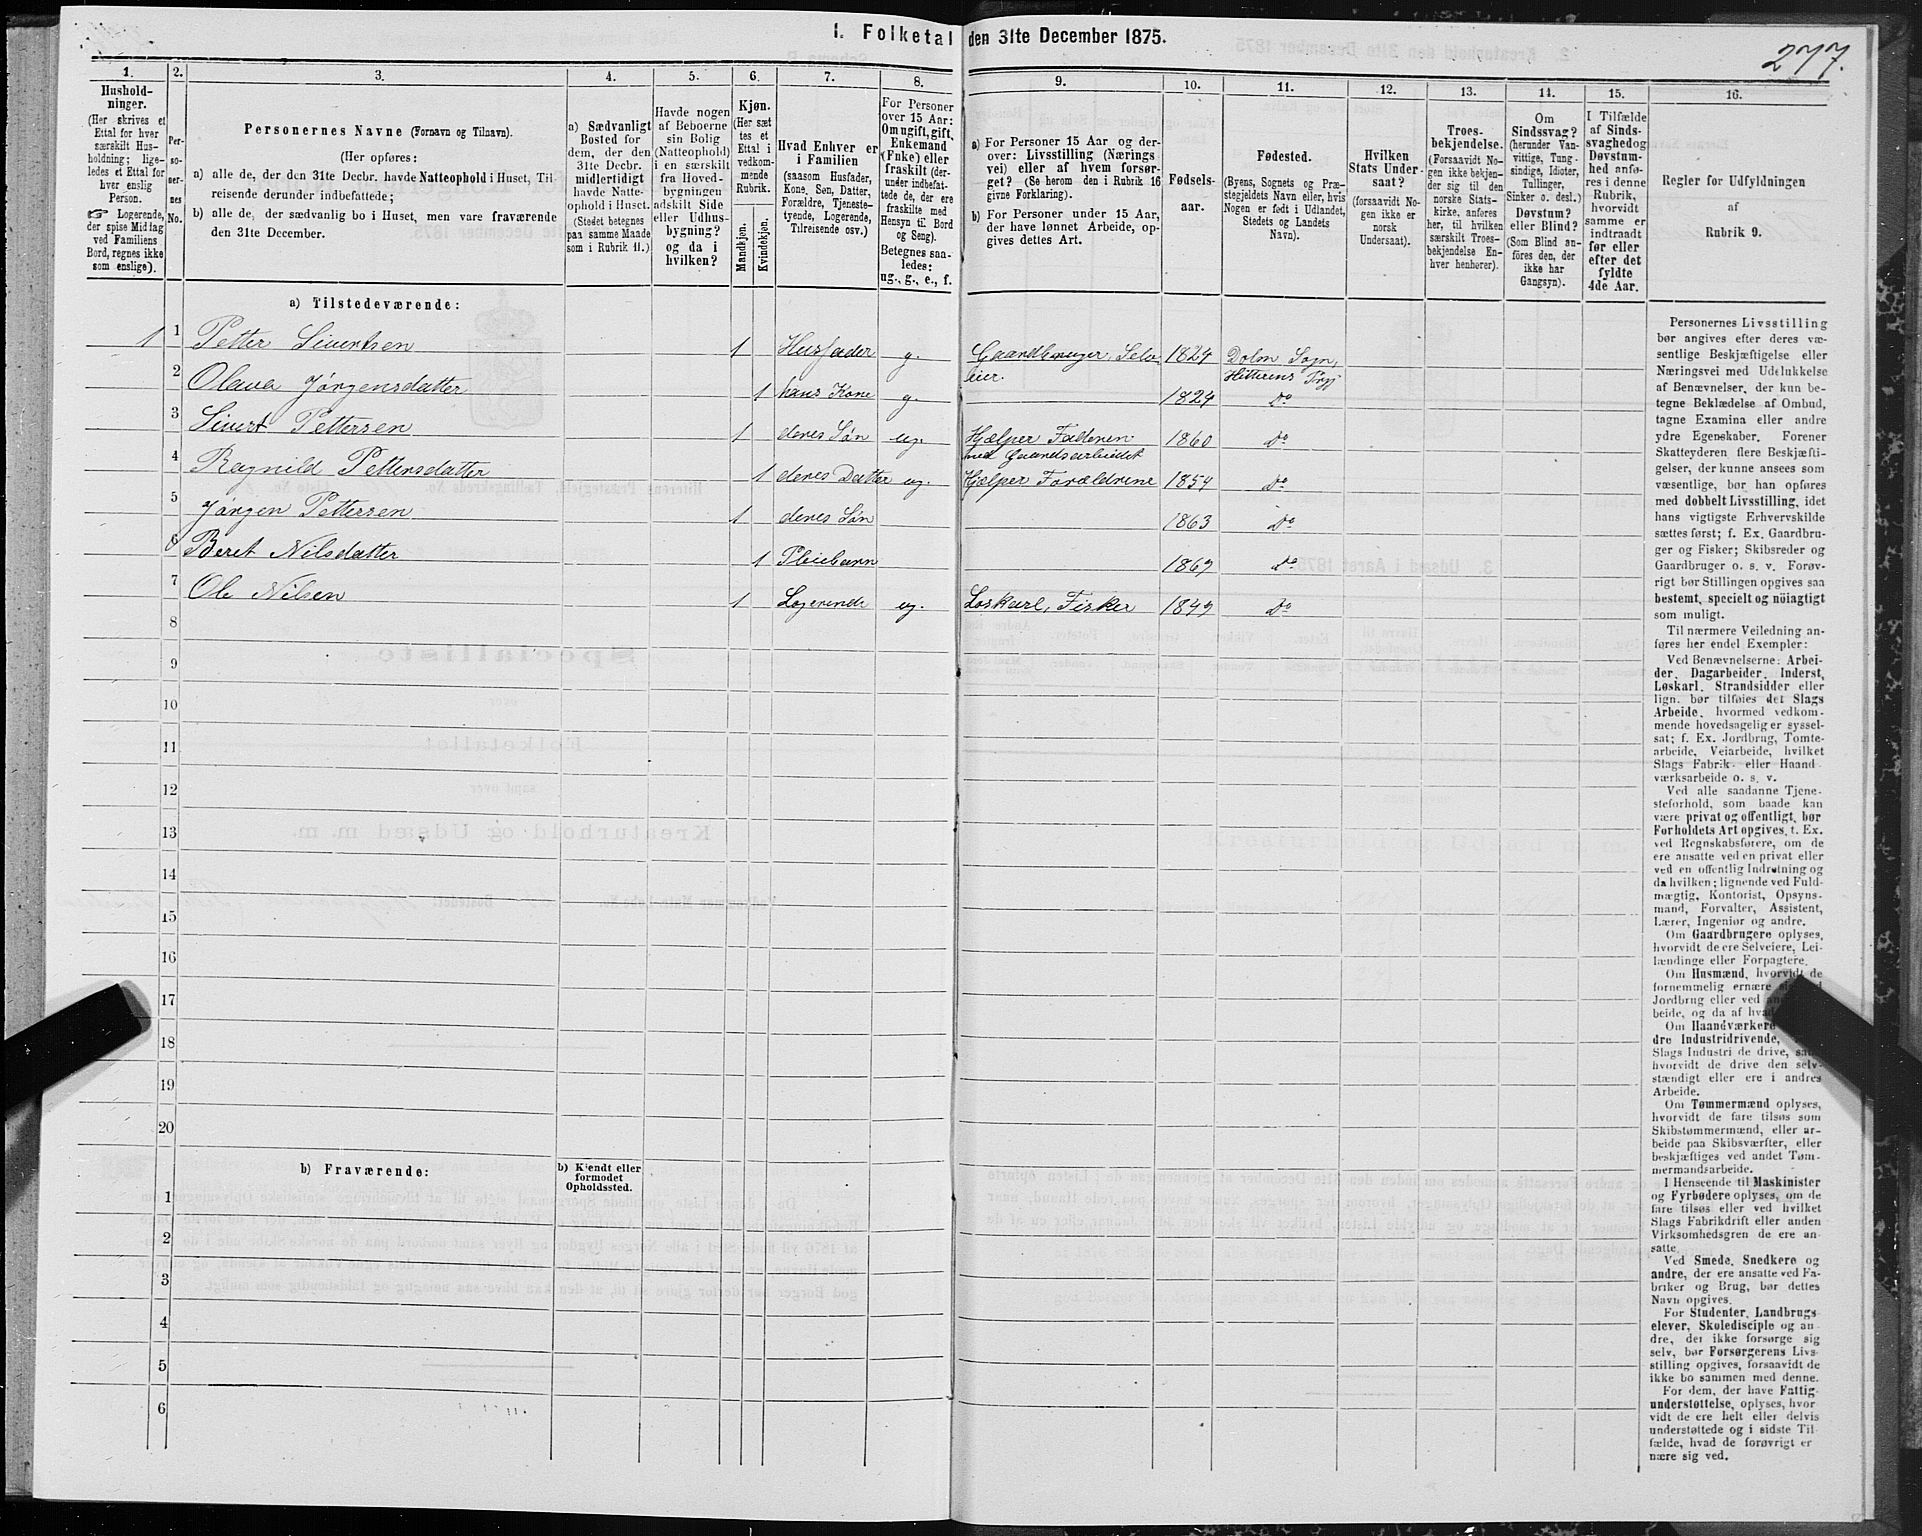 1. Folketal den 31te December 1875.
277.
1.
Husholdninger.
(Her skrives et
Ettal for hver
særskilt Husholdning; ligeledes et Ettal for
hver enslig
Person.
☞ Logerende,
der spise Middag
ved Familiens
Bord, regnes ikke
som enslige).
2.
Personernes
No.
3.
Personernes Navne (Fornavn og Tilnavn).
(Her opføres:
a) alle de, der den 31te Decbr. havde Natteophold i Huset, Tilreisende derunder indbefattede;
b) alle de, der sædvanlig bo i Huset, men vare fraværende
den 31te December.
4.
a) Sædvanligt
Bosted for
dem, der den
31te Decbr.
midlertidigt
havde Natteophold i Huset.
(Stedet betegnes
paa samme Maade
som i Rubrik 11.)
5.
Havde nogen
af Beboerne
sin Bolig
(Natteophold)
i en særskilt
fra Hovedbygningen
adskilt Side
eller Udhusbygning?
og da i
hvilken?
6.
Kjøn.
(Her sættes et
Ettal i
vedkommende
Rubrik.
Mandkjøn.
Kvindekjøn.
7.
Hvad Enhver er
i Familien
(saasom Husfader,
Kone, Søn, Datter,
Forældre, Tjenestetyende, Logerende,
Tilreisende osv.)
8.
For Personer
over 15 Aar:
Om ugift, gift,
Enkemand
(Enke) eller
fraskilt (derunder indbefattede de, der ere
fraskilte med
Hensyn til Bord
og Seng).
Betegnes saaledes:
ug., g., e., f.
9.
a) For Personer 15 Aar og derover: Livsstilling (Næringsvei) eller af hvem forsørget? (Se herom den i Rubrik 16
givne Forklaring).
b) For Personer under 15 Aar,
der have lønnet Arbeide, opgives dettes Art.
10.
Fødselsaar.
11.
Fødested.
(Byens, Sognets og Præstegjeldets Navn eller, hvis
Nogen er født i Udlandet,
Stedets og Landets
Navn).
12.
Hvilken
Stats Undersaat?
(forsaavidt Nogen ikke er
norsk
Undersaat).
13.
Troesbekjendelse.
(Forsaavidt Nogen ikke bekjender sig til den
norske Statskirke, anføres
her, til hvilken
særskilt Troesbekjendelse Enhver henhører).
14.
Om
Sindssvag?
(herunder Vanvittige, Tungsindige, Idioter,
Tullinger,
Sinker o. desl.)
Døvstum?
eller Blind?
(Som Blind anføres den, der
ikke har
Gangsyn).
15.
I Tilfælde
af Sindssvaghed og
Døvstumhed anføres i denne
Rubrik,
hvorvidt
samme er
indtraadt
før eller
efter det
fyldte
4de Aar.
16.
Regler for Udfyldningen
af
Rubrik 9.
a) Tilstedeværende:
1 1 Petter Sivertsen 1 Husfader g. Gaardbruger, Selveier. 1824 Dolm Sogn, Hitterens Prgj
2 Olava Jørgensdatter 1 hans Kone g. 1824 Do
3 Sivert Pettersen 1 deres Søn ug. Hjælper Faderen med Gaardsarbeidet 1860 Do
4 Ragnild Pettersdatter 1 deres Datter ug. Hjælper Forældrene 1854 Do
5 Jørgen Pettersen 1 deres Søn 1863 Do
6 Beret Nilsdatter 1 Pleiebarn 1869 Do
7 Ole Nilsen 1 Logerende ug. Løskarl, Fisker 1849 Do
8
9
10
11
12
13
14
15
16
17
18
19
20
b) Fraværende:
b) Kjendt eller
formodet
Opholdssted.
1
2
3
4
5
6
Personernes Livsstilling
bør angives efter deres væsentlige Beskjæftigelse eller
Næringsvei med Udelukkelse
af Benævnelser, der kun betegne Beklædelse af Ombud,
tagne Examina eller andre
ydre Egenskaber. Forener
Skatteyderen flere Beskjæftigelser, der kunne ansees som
væsentlige, bør han opføres
med dobbelt Livsstilling, idet
hans vigtigste Erhvervskilde
sættes først; f. Ex. Gaardbruger og Fisker; Skibsreder og
Gaardbruger o. s. v. Forøvrigt bør Stillingen opgives saa
bestemt, specielt og nöiagtigt
som muligt.
Til nærmere Veiledning anføres her endel Exempler:
Ved Benævnelserne: Arbeider, Dagarbeider, Inderst,
Løskarl, Strandsidder eller
lign. bør tilføies det Slags
Arbeide, hvormed vedkommende hovedsagelig er sysselsat; f. Ex. Jordbrug, Tomtearbeide, Veiarbeide, hvilket
Slags Fabrik- eller Haandværksarbeide o. s. v.
Ved alle saadanne Tjenesteforhold, som baade kan
være privat og offentligt, bør
Forholdets Art opgives, t. Ex.
ved Regnskabsførere, om de
ere ansatte ved en privat eller
ved en offentlig Indretning og
da hvilken; lignende ved Fuldmægtig, Kontorist, Opsynsmand, Forvalter, Assistent,
Lærer, Ingeniør og andre.
Om Gaardbrugere oplyses,
hvorvidt de ere Selveiere, Leilændinge eller Forpagtere.
Om Husmænd, hvorvidt de
fornemmelig ernære
Jordbrug eller ved
beide, og da af
Om Haandværkere
dre Industridrivende,
Slags Industri de drive,
hvorvidt de drive den selvstændigt eller ere i andres
Arbeide.
Om Tømmermænd oplyses,
hvorvidt de fare tilsøs som
Skibstømmermænd, eller arbeide paa Skibsværfter, eller
beskjæftiges ved andet Tømmermandsarbeide.
I Henseende til Maskinister
og Fyrbødere oplyses, om de
fare tilsøs eller ved hvilket
Slags Fabrikdrift eller anden
Virksomhedsgren de ere ansatte.
Ved Smede, Snedkere og
andre, der ere ansatte ved Fabriker og Brug, bør dettes
Navn opgives.
For Studenter, Landbrugselever, Skoledisciple og andre, der ikke forsørge sig
selv, bør Forsørgerens Livsstilling opgives, forsaavidt de
ikke bo sammen med denne.
For dem, der have Fattigunderstøttelse, oplyses, hvorvidt de ere helt eller delvis
understøttede og i sidste Tilfælde, hvad de forøvrigt er
nære sig ved.